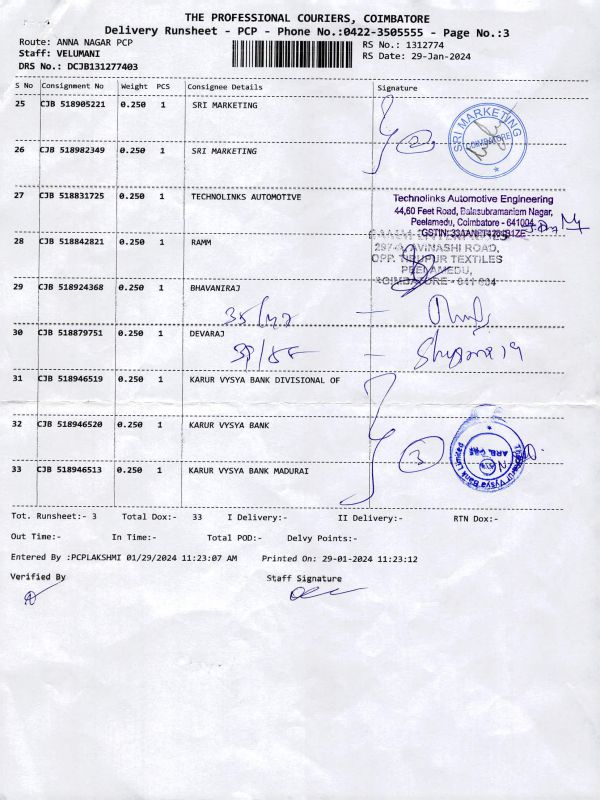 THE PROFESSIONAL COURIERS, COIMBATORE
Delivery Runsheet - PCP - Phone No.:0422-3505555 - Page No.:3
Route: ANNA NAGAR PCP
RS No.: 1312774
Staff: VELUMANI
RS Date: 29-Jan-2024
DRS No.: DCJB131277403
S No Consignment No Weight PCS Consignee Details Signature
25 CJB 518905221 0.250 1 SRI MARKETING
2
SRI MARKETING
COIMBATORE
26 CJB 518982349 0.250 1 SRI MARKETING
27 CJB 518831725 0.250 1 TECHNOLINKS AUTOMOTIVE
Technolinks Automotive Engineering
44,60 Feet Road, Balasubramaniam Nagar,
Peelamedu, Coimbatore - 641004
28 CJB 518842821 0.250 1 RAMM
AVINASHI ROAD,
OPP. TIRUPUR TEXTILES
PEELAMEDU,
COIMBATORE - 641 004
29 CJB 518924368 0.250 1 BHAVANIRAJ
30 CJB 518879751 0.250 1 DEVARAJ
31 CJB 518946519 0.250 1 KARUR VYSYA BANK DIVISIONAL OF
32 CJB 518946520 0.250 1 KARUR VYSYA BANK
3
33 CJB 518946513 0.250 1 KARUR VYSYA BANK MADURAI
Tot. Runsheet:- 3 Total Dox:- 33 I Delivery:- II Delivery:- RTN Dox:-
Out Time:- In Time:- Total POD:- Delvy Points:-
Entered By :PCPLAKSHMI 01/29/2024 11:23:07 AM Printed On: 29-01-2024 11:23:12
Verified By Staff Signature